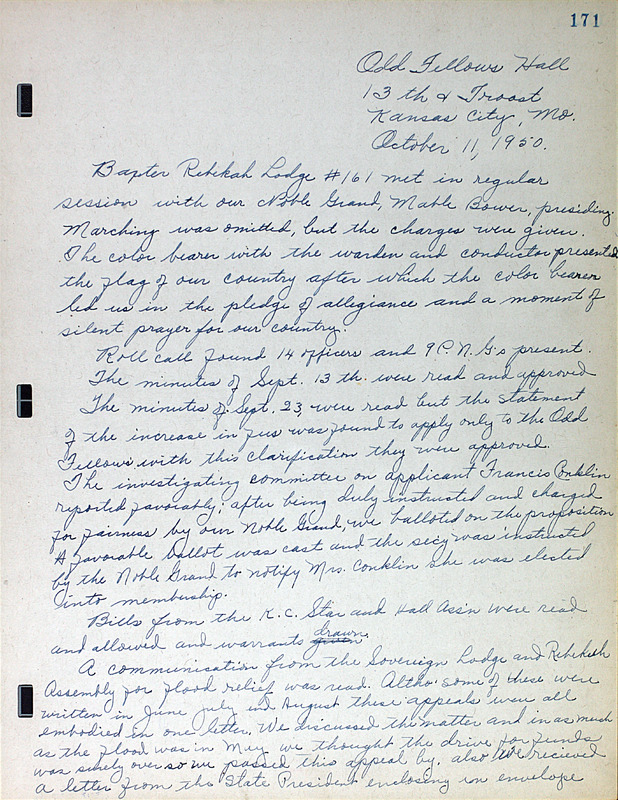 171
Odd Fellows Hall
13 th & Troost
Kansas City, Mo.
October 11, 1950.
Baxter Rebekah Lodge #161 met in regular
session with our Noble Grand, Mable Bower, presiding.
Marching was omitted, but the charges were given.
The color bearer with the warden and conductor presented
the flag of our country after which the color bearer
led us in the pledge of allegiance and a moment of
silent prayer for our country.
Roll call found 14 officers and 9 P. N. G.'s present.
The minutes of Sept. 13 th. were read and approved
The minutes of Sept. 23, were read but the statement
of the increase in fees was found to apply only to the Odd
Fellows, with this clarification they were approved.
The investigating committee on applicant Francis Conklin
reported favorably; after being duly instructed and charged
for fairness by our Noble Grand, we balloted on the proposition
A favorable ballot was cast and the secy was instructed
by the Noble Grand to notify Mrs. Conklin she was elected
into membership.
Bills from the K. C. Star and Hall Ass'n were read
and allowed and warrants given drawn.
A communication from the Sovereign Lodge and Rebekah
Assembly for flood relief was read. Altho' some of these were
written in June July and August these appeals were all
embodied in one letter. We discussed the matter and in as much
as the flood was in May we thought the drive for funds
was surely over so we passed this appeal by. also We recieved
a letter from the State President enclosing an envelope